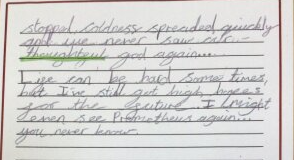 stopped, coldness spreaded quickly
and we never saw our
thoughtful god again...
Life can be hard some times,
but I've still got high hopes
for the future. I might
even see Prometheus again...
you never know.